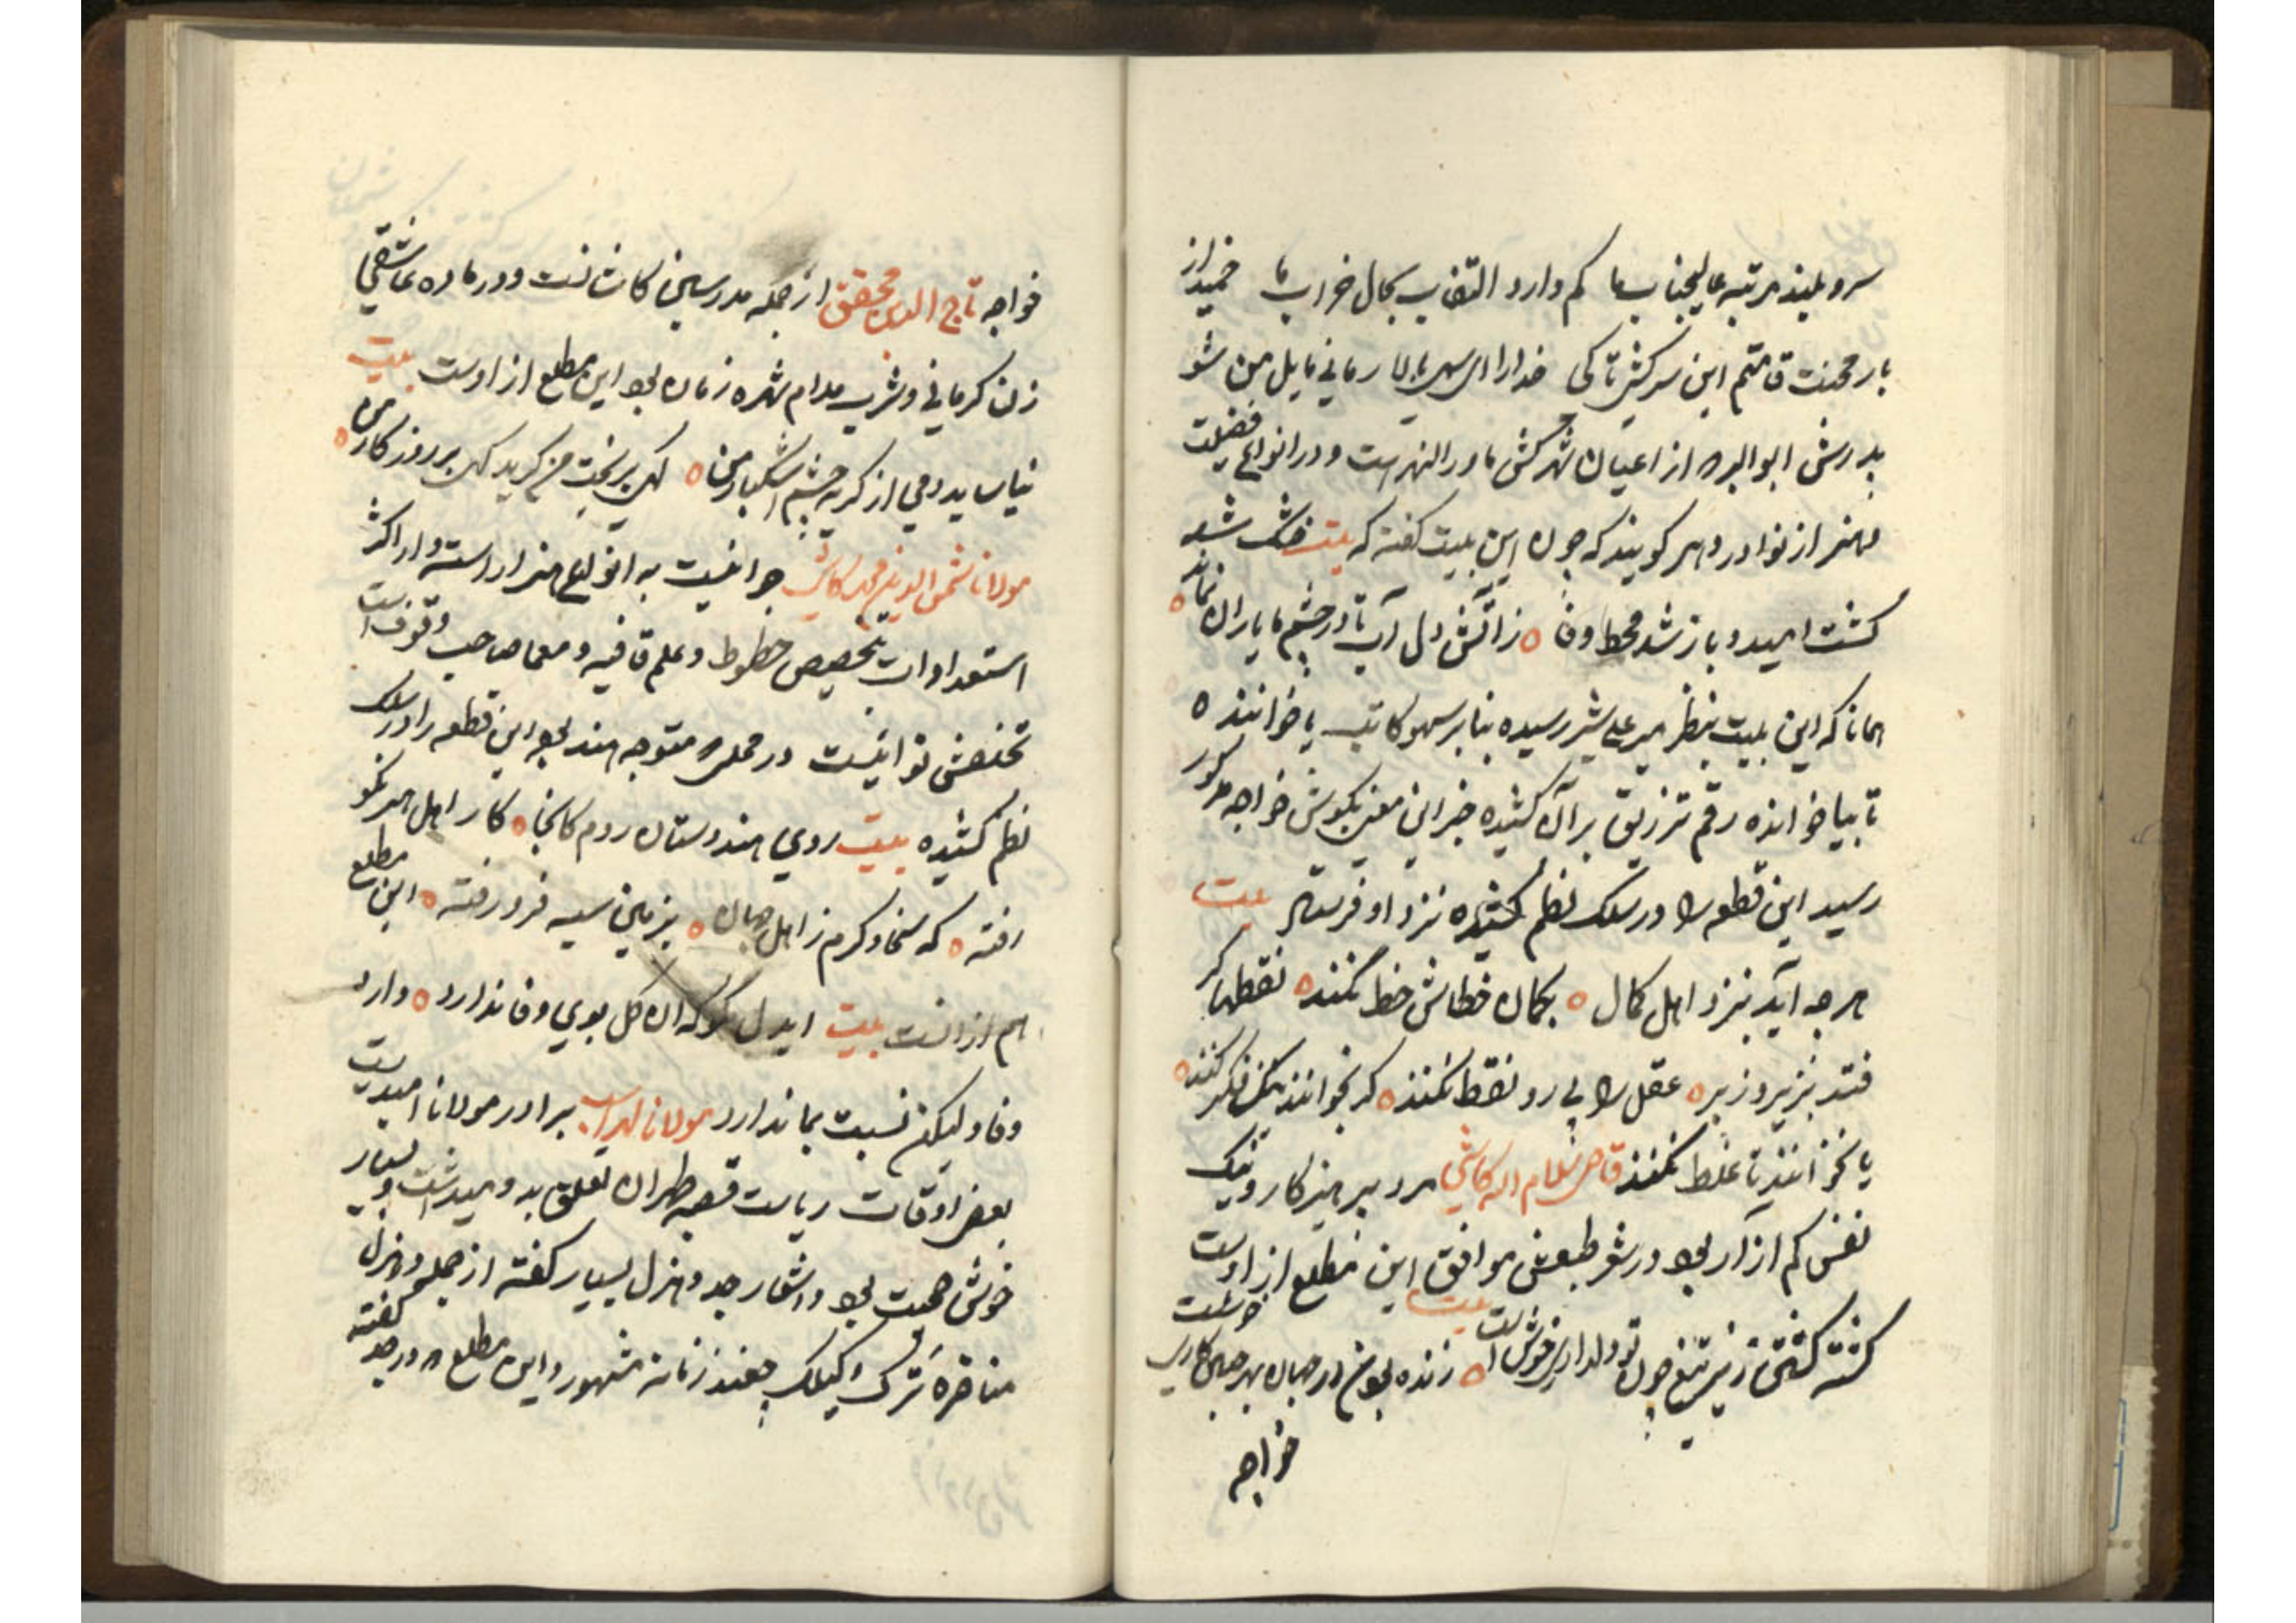 سرو بلند مرتبه عالیجناب ما کم دارد التفات بحال خراب ما خمید از
بار محنت قامتم این سرکشی تا کی خدارا ای سهی بالا زمانی مایل من شو
پدرش ابوالبرکه از اعیان شهر کش ماورالنهرست و در انواع فضیلت
و هنر از نوادر دهر گویند که چون این بیت گفته که بیت خشک شد
کشت امید و باز شد محط وفا ز آتش دل آب تا در چشم ما یاران نماند
همانا که این بیت بنظر میر علی شیر رسیده بنابر سهو کاتب یا خواننده
تا بیا خوانده رقم تزریق بر آن کشیده خبر این معنی بگوش خواجه مذکور
رسید این قطعه را در سلک نظم کشیده نزد او فرستاد بیت
هر چه آید بنزد اهل کمال بگمان خطاش خط نکنند نقطها گر
فتد بزیر و زبر عقل را پی رو نقط نکنند گر نخوانند یک فکر کنند
یا نخوانند تا غلط نکنند قاضی غلام اله کاشی مرد پرهیزکار و نیک
نفس کم آزار بود در شعر طبعش موافق این مطلع از اوست
بیت
کشته گشتن زیر تیغ چون تو دلداری خوش است زنده بودن در جهان بهر چنین کاری خوشست
خواجه
خواجه تاج الدین محقق از جمله مدرسین کاشانست و در ماده عاشقی
زن کرمانی و شرب مدام شهره زمان بود این مطلع از اوست بیت
نیاساید دمی از گریه چشم اشکبار من گهی بر بخت من گرید گهی بر روزگار من
مولانا شمس الدین محمد کاشی جوانیست به انواع هنر اراسته و از اکثر
استعدادات بتخصیص خطوط و علم قافیه و معما صاحب وقوف است
تخلصش نوائیست در محلی که متوجه هند بود این قطعه را در سلک
نظم کشیده بیت روی هندوستان روم کانجا کار اهل هنر نکو
رفته که سخا و کرم ز اهل جهان بزمین سیه فرو رفته این مطلع
هم از انست بیت ایدل گو که ان گل بوی وفا ندارد دارد
وفا و لیکن نسبت بما ندارد مولانا لهراسب برادر مولانا امیدیست
بعضی اوقات ریاست قصبه طهران تعلق بدو میداشت و بسیار
خوش صحبت بود و اشعار جد و هزل بسیار گفته از جمله در هزل
مناظره ترک و گیلک چغند زمانه مشهور و این مطلع در جد گفته